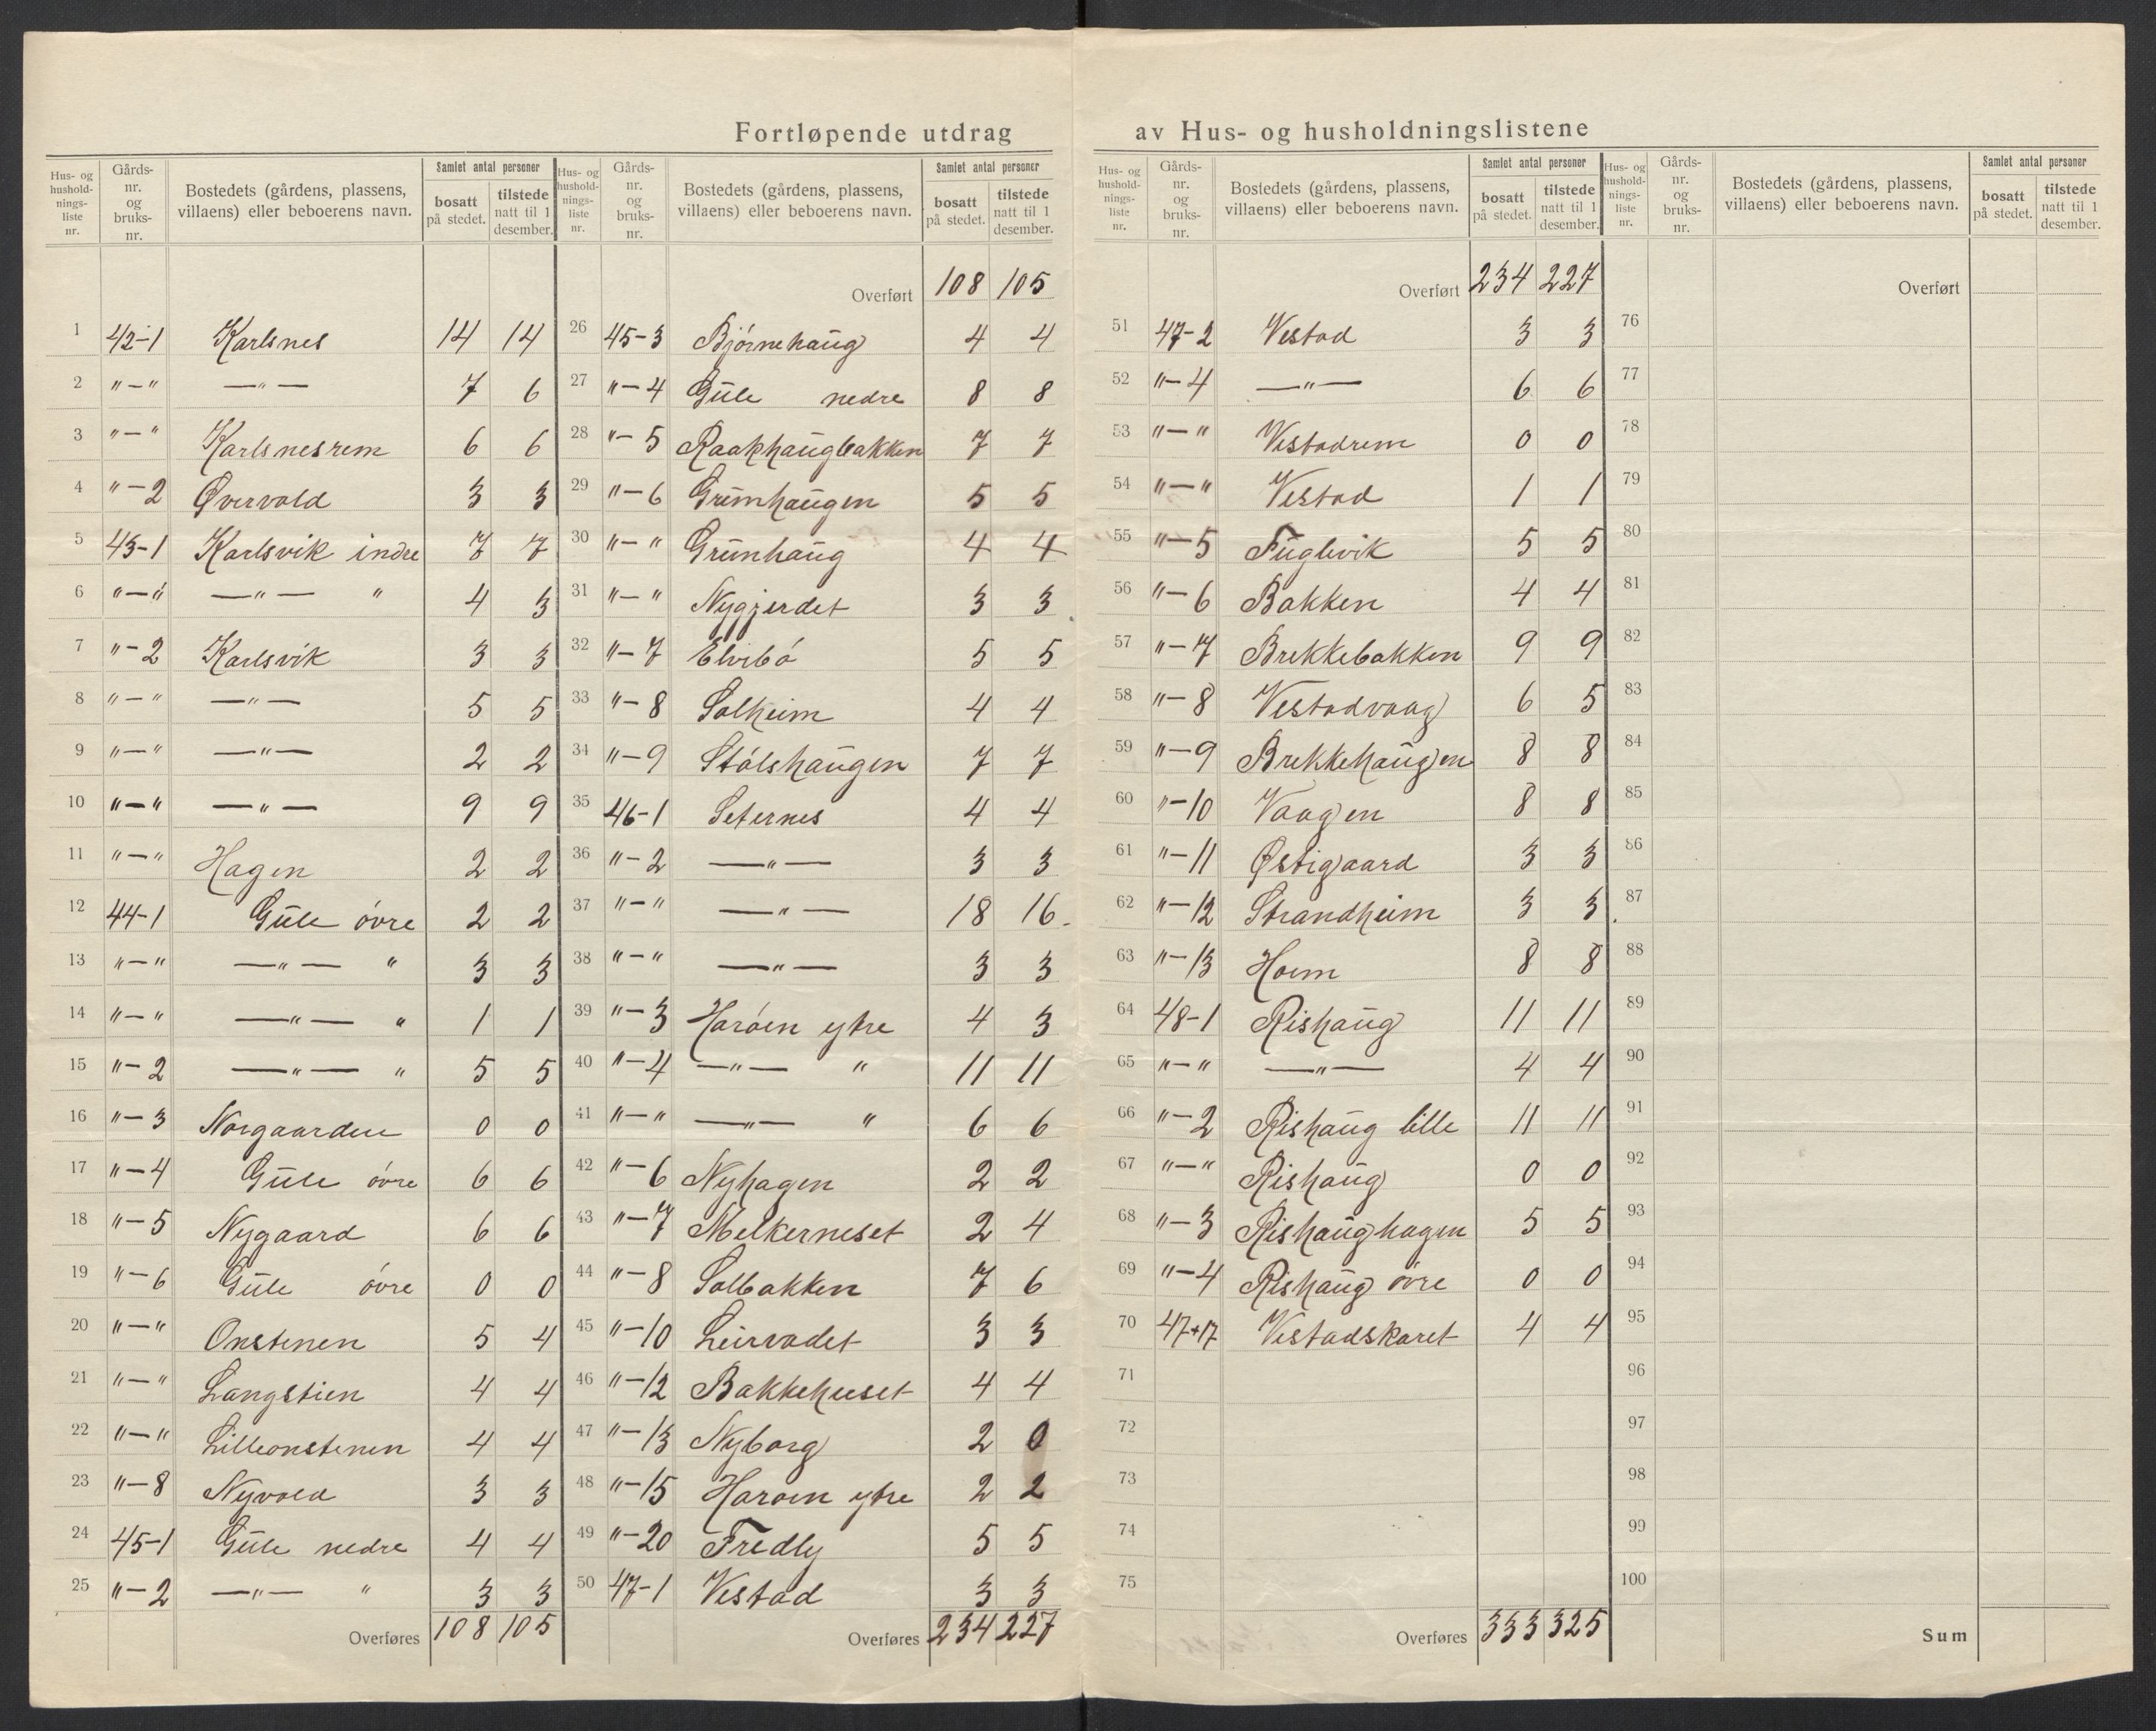 Fortløpende utdrag av Hus- og husholdningslistene
Hus- og hushold-nings-liste nr. | Gårds-nr. og bruks-nr. | Bostedets (gårdens, plassens, villaens) eller beboerens navn. | Samlet antal personer | bosatt på stedet. | tilstede natt til 1 desember.
1 42-1 Karlsnes 14 14
2 "-" —"— 7 6
3 "-" Karlsnesrem 6 6
4 "-2 Øvervold 3 3
5 43-1 Karlsvik indre 7 7
6 "-" —"— " 4 3
7 "-2 Karlsvik 3 3
8 "-" —"— 5 5
9 "-" —"— 2 2
10 "-" —"— 9 9
11 "-" Hagen 2 2
12 44-1 Güle övre 2 2
13 "-" —"— " 3 3
14 "-" —"— " 1 1
15 "-2 —"— " 5 5
16 "-3 Norgaarden 0 0
17 "-4 Güle övre 6 6
18 "-5 Nygaard 6 6
19 "-6 Güle övre 0 0
20 "-" Onstenen 5 4
21 "-" Langstien 4 4
22 "-" Lilleonstenen 4 4
23 "-8 Nyvold 3 3
24 45-1 Güle nedre 4 4
25 "-2 —"— " 3 3
Overføres 108 105
Hus- og hushold-nings-liste nr. | Gårds-nr. og bruks-nr. | Bostedets (gårdens, plassens, villaens) eller beboerens navn. | Samlet antal personer | bosatt på stedet. | tilstede natt til 1 desember.
Overført 108 105
26 45-3 Bjørnehaüg 4 4
27 "-4 Güle nedre 8 8
28 "-5 Raakhaügbakken 7 7
29 "-6 Grünhaügen 5 5
30 "-" Grünhaüg 4 4
31 "-" Nygjerdet 3 3
32 "-7 Elvebö 5 5
33 "-8 Solheim 4 4
34 "-9 Stólshaügen 7 7
35 46-1 Seternes 4 4
36 "-2 —"— 3 3
37 "-" —"— 18 16
38 "-" —"— 3 3
39 "-3 Haróen ytre 4 3
40 "-4 —"— " 11 11
41 "-" —"— " 6 6
42 "-6 Nyhagen 2 2
43 "-7 Melkerneset 2 4
44 "-8 Solbakken 7 6
45 "-10 Leirvadet 3 3
46 "-12 Bakkehuset 4 4
47 "-13 Nyborg 2 0
48 "-15 Haroen ytre 2 2
49 "-20 Fredly 5 5
50 47-1 Vestad 3 3
Overføres 234 227
Hus- og hushold-nings-liste nr. | Gårds-nr. og bruks-nr. | Bostedets (gårdens, plassens, villaens) eller beboerens navn. | Samlet antal personer | bosatt på stedet. | tilstede natt til 1 desember.
Overført 234 227
51 47-2 Vestad 3 3
52 "-4 —"— 6 6
53 "-" Vestadrem 0 0
54 "-" Vestad 1 1
55 "-5 Füglevik 5 5
56 "-6 Bakken 4 4
57 "-7 Brekkebakken 9 9
58 "-8 Vestadvaag 6 5
59 "-9 Brekkehaügen 8 8
60 "-10 Vaagen 8 8
61 "-11 Østigaard 3 3
62 "-12 Strandheim 3 3
63 "-13 Hoem 8 8
64 48-1 Rishaüg 11 11
65 "-" —"— 4 4
66 "-2 Rishaüg lille 11 11
67 "-" Rishaüg 0 0
68 "-3 Rishaüghagen 5 5
69 "-4 Rishaüg övre 0 0
70 47+17 Vestadskaret 4 4
71
72
73
74
75
Overføres 333 325
Hus- og hushold-nings-liste nr. | Gårds-nr. og bruks-nr. | Bostedets (gårdens, plassens, villaens) eller beboerens navn. | Samlet antal personer | bosatt på stedet. | tilstede natt til 1 desember.
Overført
76
77
78
79
80
81
82
83
84
85
86
87
88
89
90
91
92
93
94
95
96
97
98
99
100
Sum